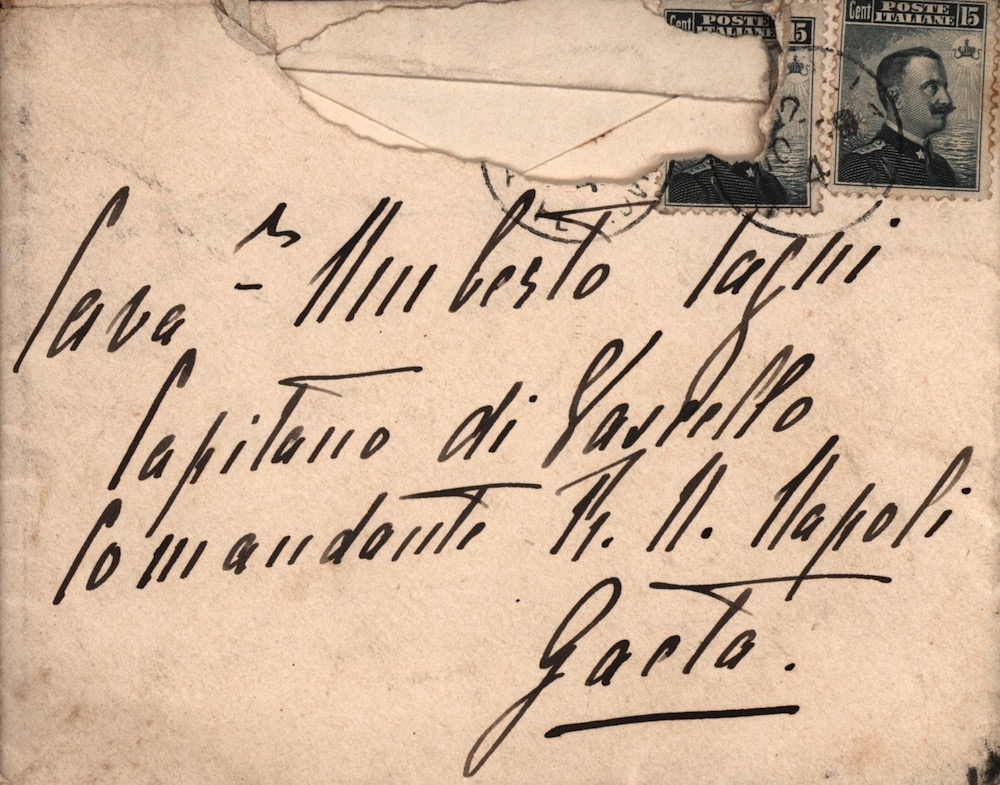 Cent POSTE ITALIANE 15
Cent POSTE ITALIANE 15
Cava.re Umberto Cagni
Capitano di Vascello
Comandante R. N. Napoli
Gaeta.